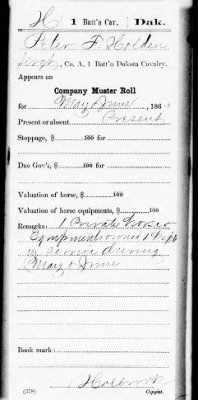 H 1 Batt'n Cav. Dak.
Peter F. Holden
Serg't, Co. A, 1 Batt'n Dakota Cavalry.
Appears on
Company Muster Roll
for May & June, 186
Present or absent Present
Stoppage, $ 100 for
Due Gov't, $ 100 for
Valuation of horse, $ 100
Valuation of horse equipments, $ 100
Remarks: 1 Private Horse
Equipments owned &
in service during
May & June
Book mark:
Holbrook
(358) Copyist.